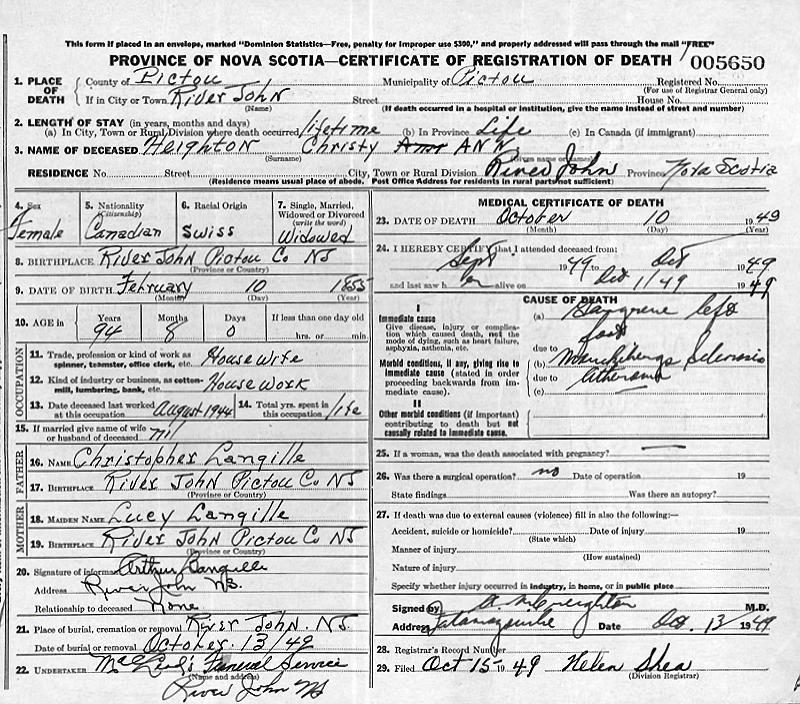 This form if placed in an envelope, marked "Dominion Statistics—Free, penalty for improper use $300," and properly addressed will pass through the mail "FREE"
PROVINCE OF NOVA SCOTIA—CERTIFICATE OF REGISTRATION OF DEATH 005650
1. PLACE OF DEATH County of Pictou Municipality of Pictou Registered No.
(For use of Registrar General only)
If in City or Town River John Street House No.
(Name) (If death occurred in a hospital or institution, give the name instead of street and number)
2. LENGTH OF STAY (in years, months and days)
(a) In City, Town or Rural Division where death occurred lifetime (b) In Province Life (c) In Canada (if immigrant)
3. NAME OF DECEASED Heighton Christy ANN
(Surname) (Given name or names)
RESIDENCE No. Street City, Town or Rural Division River John Province Nova Scotia
(Residence means usual place of abode. Post Office Address for residents in rural parts not sufficient)
4. Sex 5. Nationality (Citizenship) 6. Racial Origin 7. Single, Married, Widowed or Divorced (write the word)
Female Canadian Swiss Widowed
8. BIRTHPLACE River John Pictou Co NS
(Province or Country)
9. DATE OF BIRTH February 10 1855
(Month) (Day) (Year)
10. AGE in Years Months Days If less than one day old
94 8 0 hrs. or min.
OCCUPATION
11. Trade, profession or kind of work as spinner, teamster, office clerk, etc. House Wife
12. Kind of industry or business, as cotton-mill, lumbering, bank, etc. House Work
13. Date deceased last worked at this occupation August 1944 14. Total yrs. spent in this occupation life
15. If married give name of wife or husband of deceased nil
FATHER
16. NAME Christopher Langille
17. BIRTHPLACE River John Pictou Co NS
(Province or Country)
MOTHER
18. MAIDEN NAME Lucy Langille
19. BIRTHPLACE River John Pictou Co NS
(Province or Country)
20. Signature of informant Arthur Langille
Address River John NS.
Relationship to deceased None
21. Place of burial, cremation or removal River John. NS
Date of burial or removal October 13/49
22. UNDERTAKER Funeral Service
(Name and address)
River John NS
MEDICAL CERTIFICATE OF DEATH
23. DATE OF DEATH October 10 1949
(Month) (Day) (Year)
24. I HEREBY CERTIFY that I attended deceased from:
Sept 1949 to Oct 1949
and last saw h er alive on Oct 11/49 1949
CAUSE OF DEATH
I
Immediate cause
Give disease, injury or complication which caused death, not the mode of dying, such as heart failure, asphyxia, asthenia, etc.
(a) Gangrene left
foot
due to
Morbid conditions, if any, giving rise to immediate cause (stated in order proceeding backwards from immediate cause).
(b) Sclerosis
due to atheroma
(c)
II
Other morbid conditions (if important) contributing to death but not causally related to immediate cause.
25. If a woman, was the death associated with pregnancy? —
26. Was there a surgical operation? no Date of operation 19
State findings Was there an autopsy?
27. If death was due to external causes (violence) fill in also the following:—
Accident, suicide or homicide? Date of injury 19
(State which)
Manner of injury
(How sustained)
Nature of injury
Specify whether injury occurred in industry, in home, or in public place
Signed by M.D.
Address Tatamagouche Date Oct. 13 1949
28. Registrar's Record Number
29. Filed Oct 15 1949 Helen Shea
(Division Registrar)